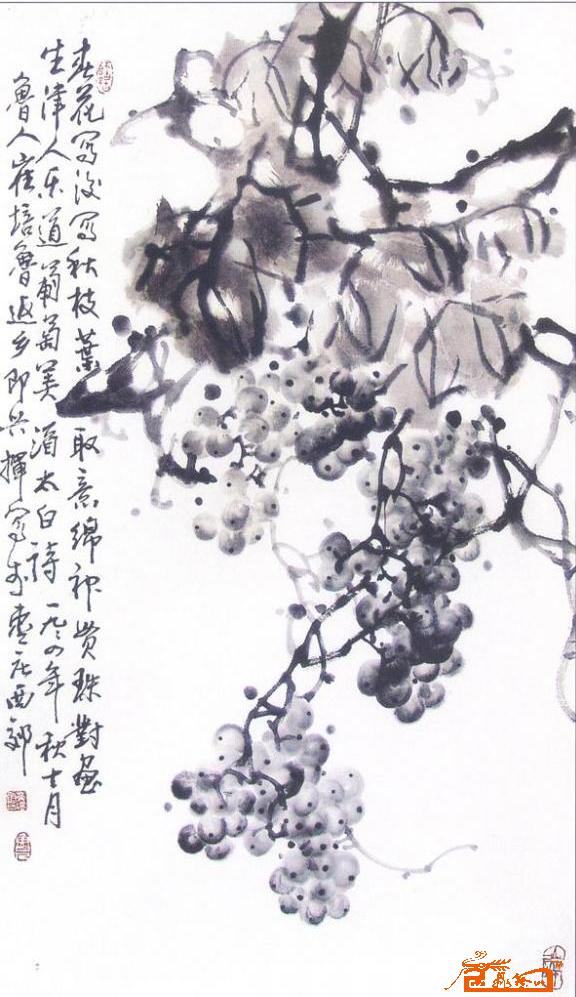 春花写后写秋枝叶取意绵神贯珠对画
生津人乐道葡萄美酒太白诗一九〇四年秋十月
鲁人崔培鲁返乡即兴挥写于枣庄西郊